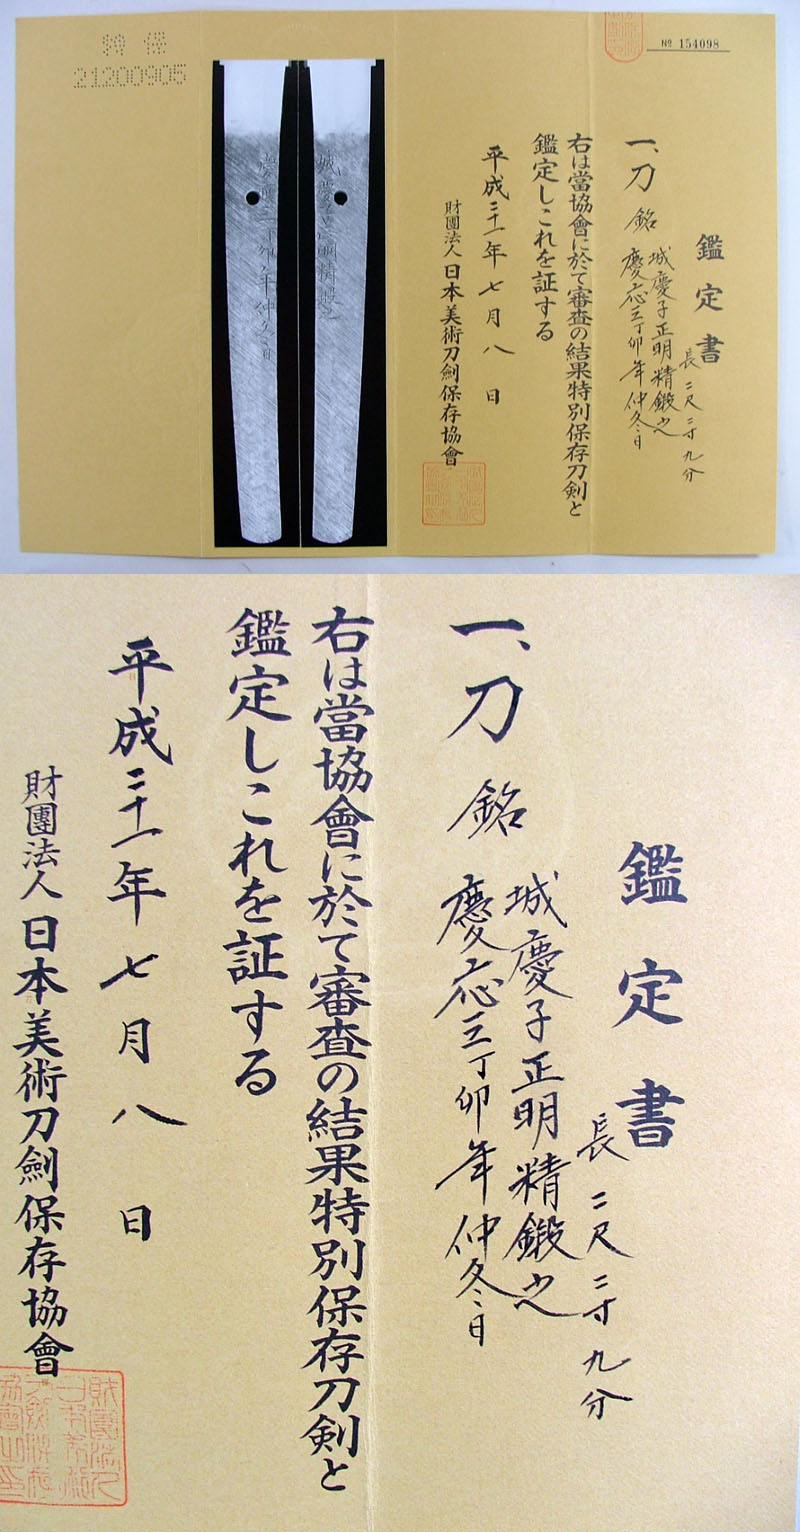 特保
21200905
№ 154098
鑑定書
長二尺二寸九分
一、刀 銘 城慶子正明精鍛之
慶応三丁卯年仲冬日
右は當協會に於て審査の結果特別保存刀剣と
鑑定しこれを証する
平成二十一年七月八日
財團法人日本美術刀劍保存協會
城慶子正明精鍛之
慶應三丁卯年仲冬日
鑑定書
長二尺二寸九分
一、刀 銘 城慶子正明精鍛之
慶応三丁卯年仲冬日
右は當協會に於て審査の結果特別保存刀剣と
鑑定しこれを証する
平成二十一年七月八日
財團法人日本美術刀劍保存協會